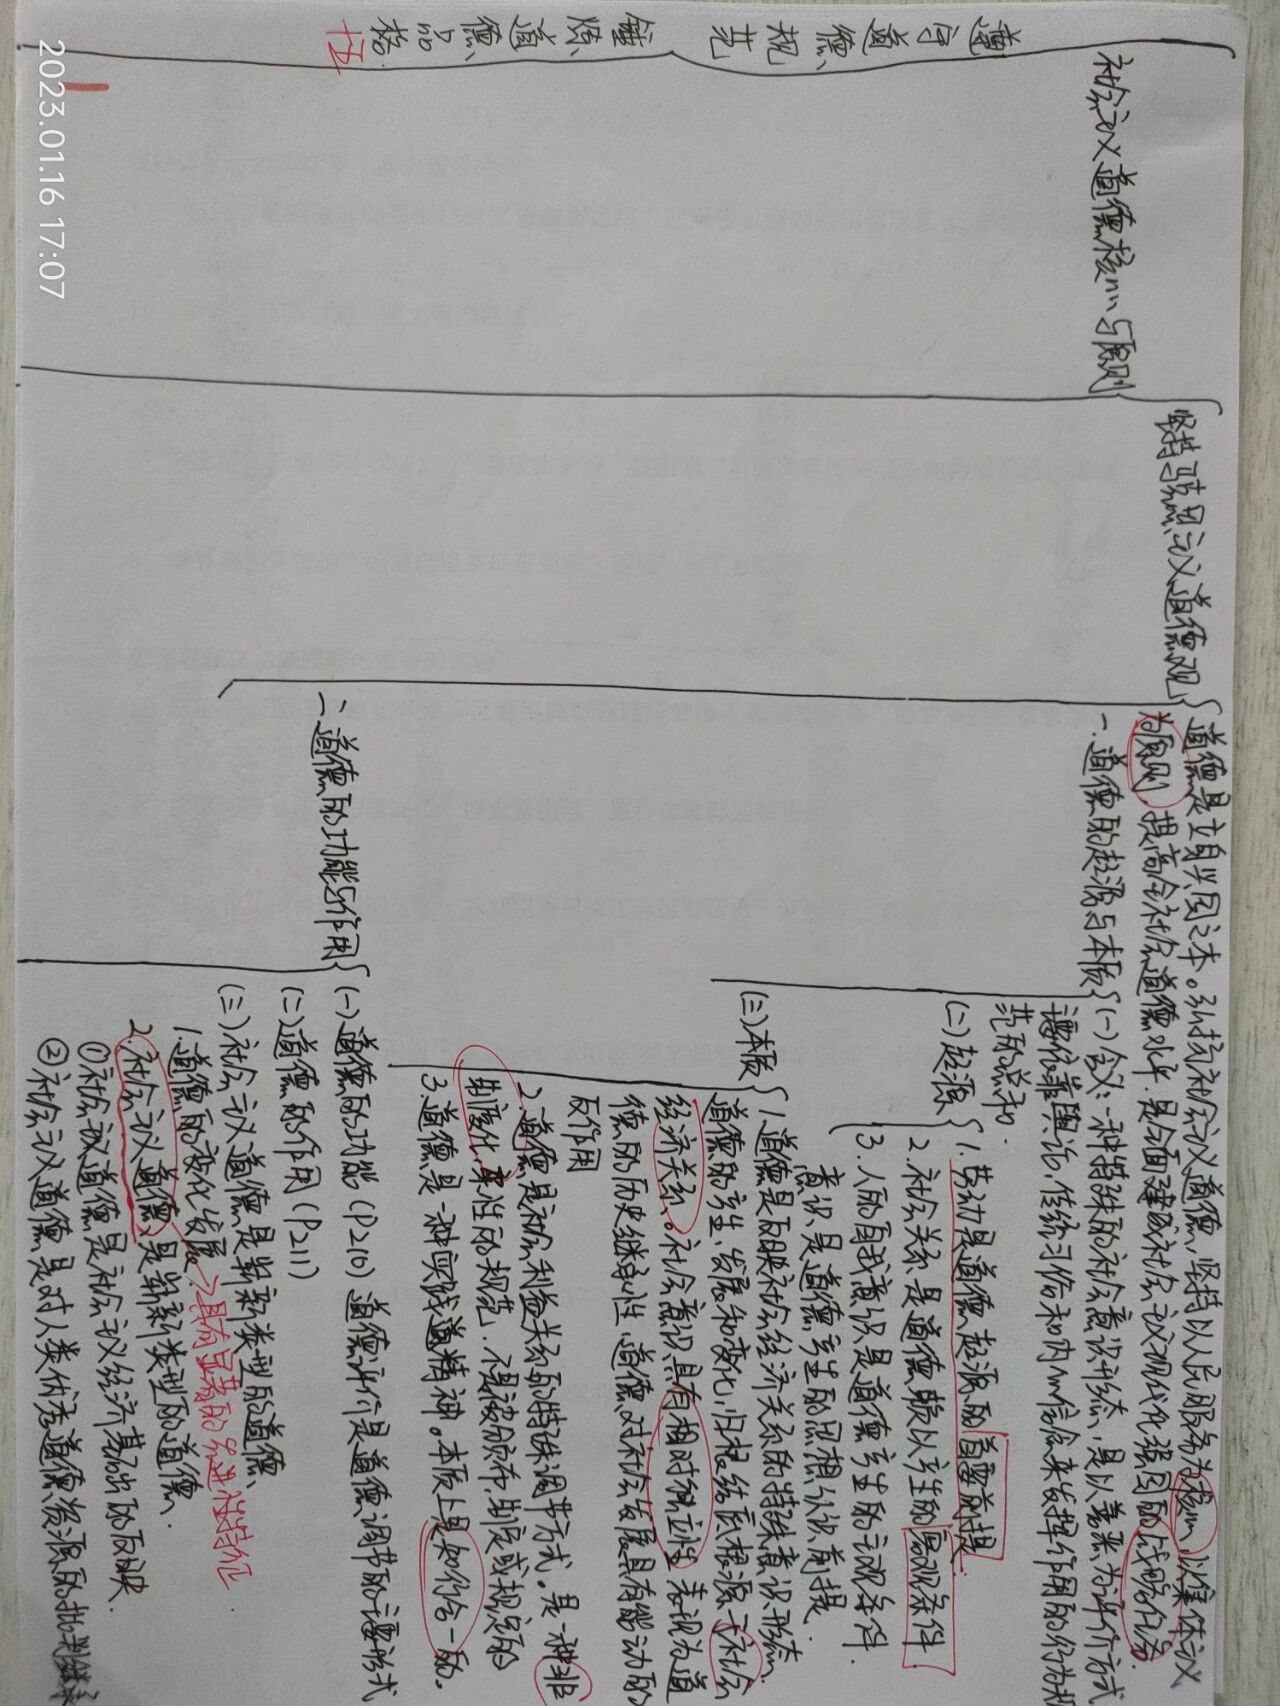 遵守道德规范
锤炼道德品格
十五
社会主义道德核心与原则
坚持马克思主义道德观
道德是立身兴国之本。弘扬社会主义道德,坚持以人民服务为核心,以集体主义
为原则,提高全社会道德水平,是全面建成社会主义现代化强国的战略任务.
一.道德的起源与本质
(一)含义:一种特殊的社会意识形态,是以善恶为评价方式
主要依靠舆论,传统习俗和内心信念来发挥作用的行为规
范的总和.
(二)起源
1.劳动是道德起源的首要前提.
2.社会关系是道德赖以产生的客观条件.
3.人的自我意识是道德产生的主观条件.
意识是道德产生的思想认识前提.
(三)本质
1.道德是反映社会经济关系的特殊意识形态
道德的产生,发展和变化,归根结底根源于社会
经济关系。社会意识具有相对独立性 表现为道
德的历史继承性,道德对社会发展具有能动的
反作用
2.道德是社会利益关系的特殊调节方式。是一种非
制度化,柔性的规范,不是被颁布,制度或规定的
3.道德是一种实践精神。本质上是知行合一的。
二.道德的功能与作用
(一)道德的功能(P210) 道德评价是道德调节的主要形式
(二)道德的作用(P211)
(三)社会主义道德是崭新类型的道德
1.道德的变化发展→具有显著的先进性特征.
2.社会主义道德是崭新类型的道德.
①社会主义道德是社会主义经济基础的反映.
②社会主义道德是对人类优秀道德资源的批判继承
2023.01.16 17:07